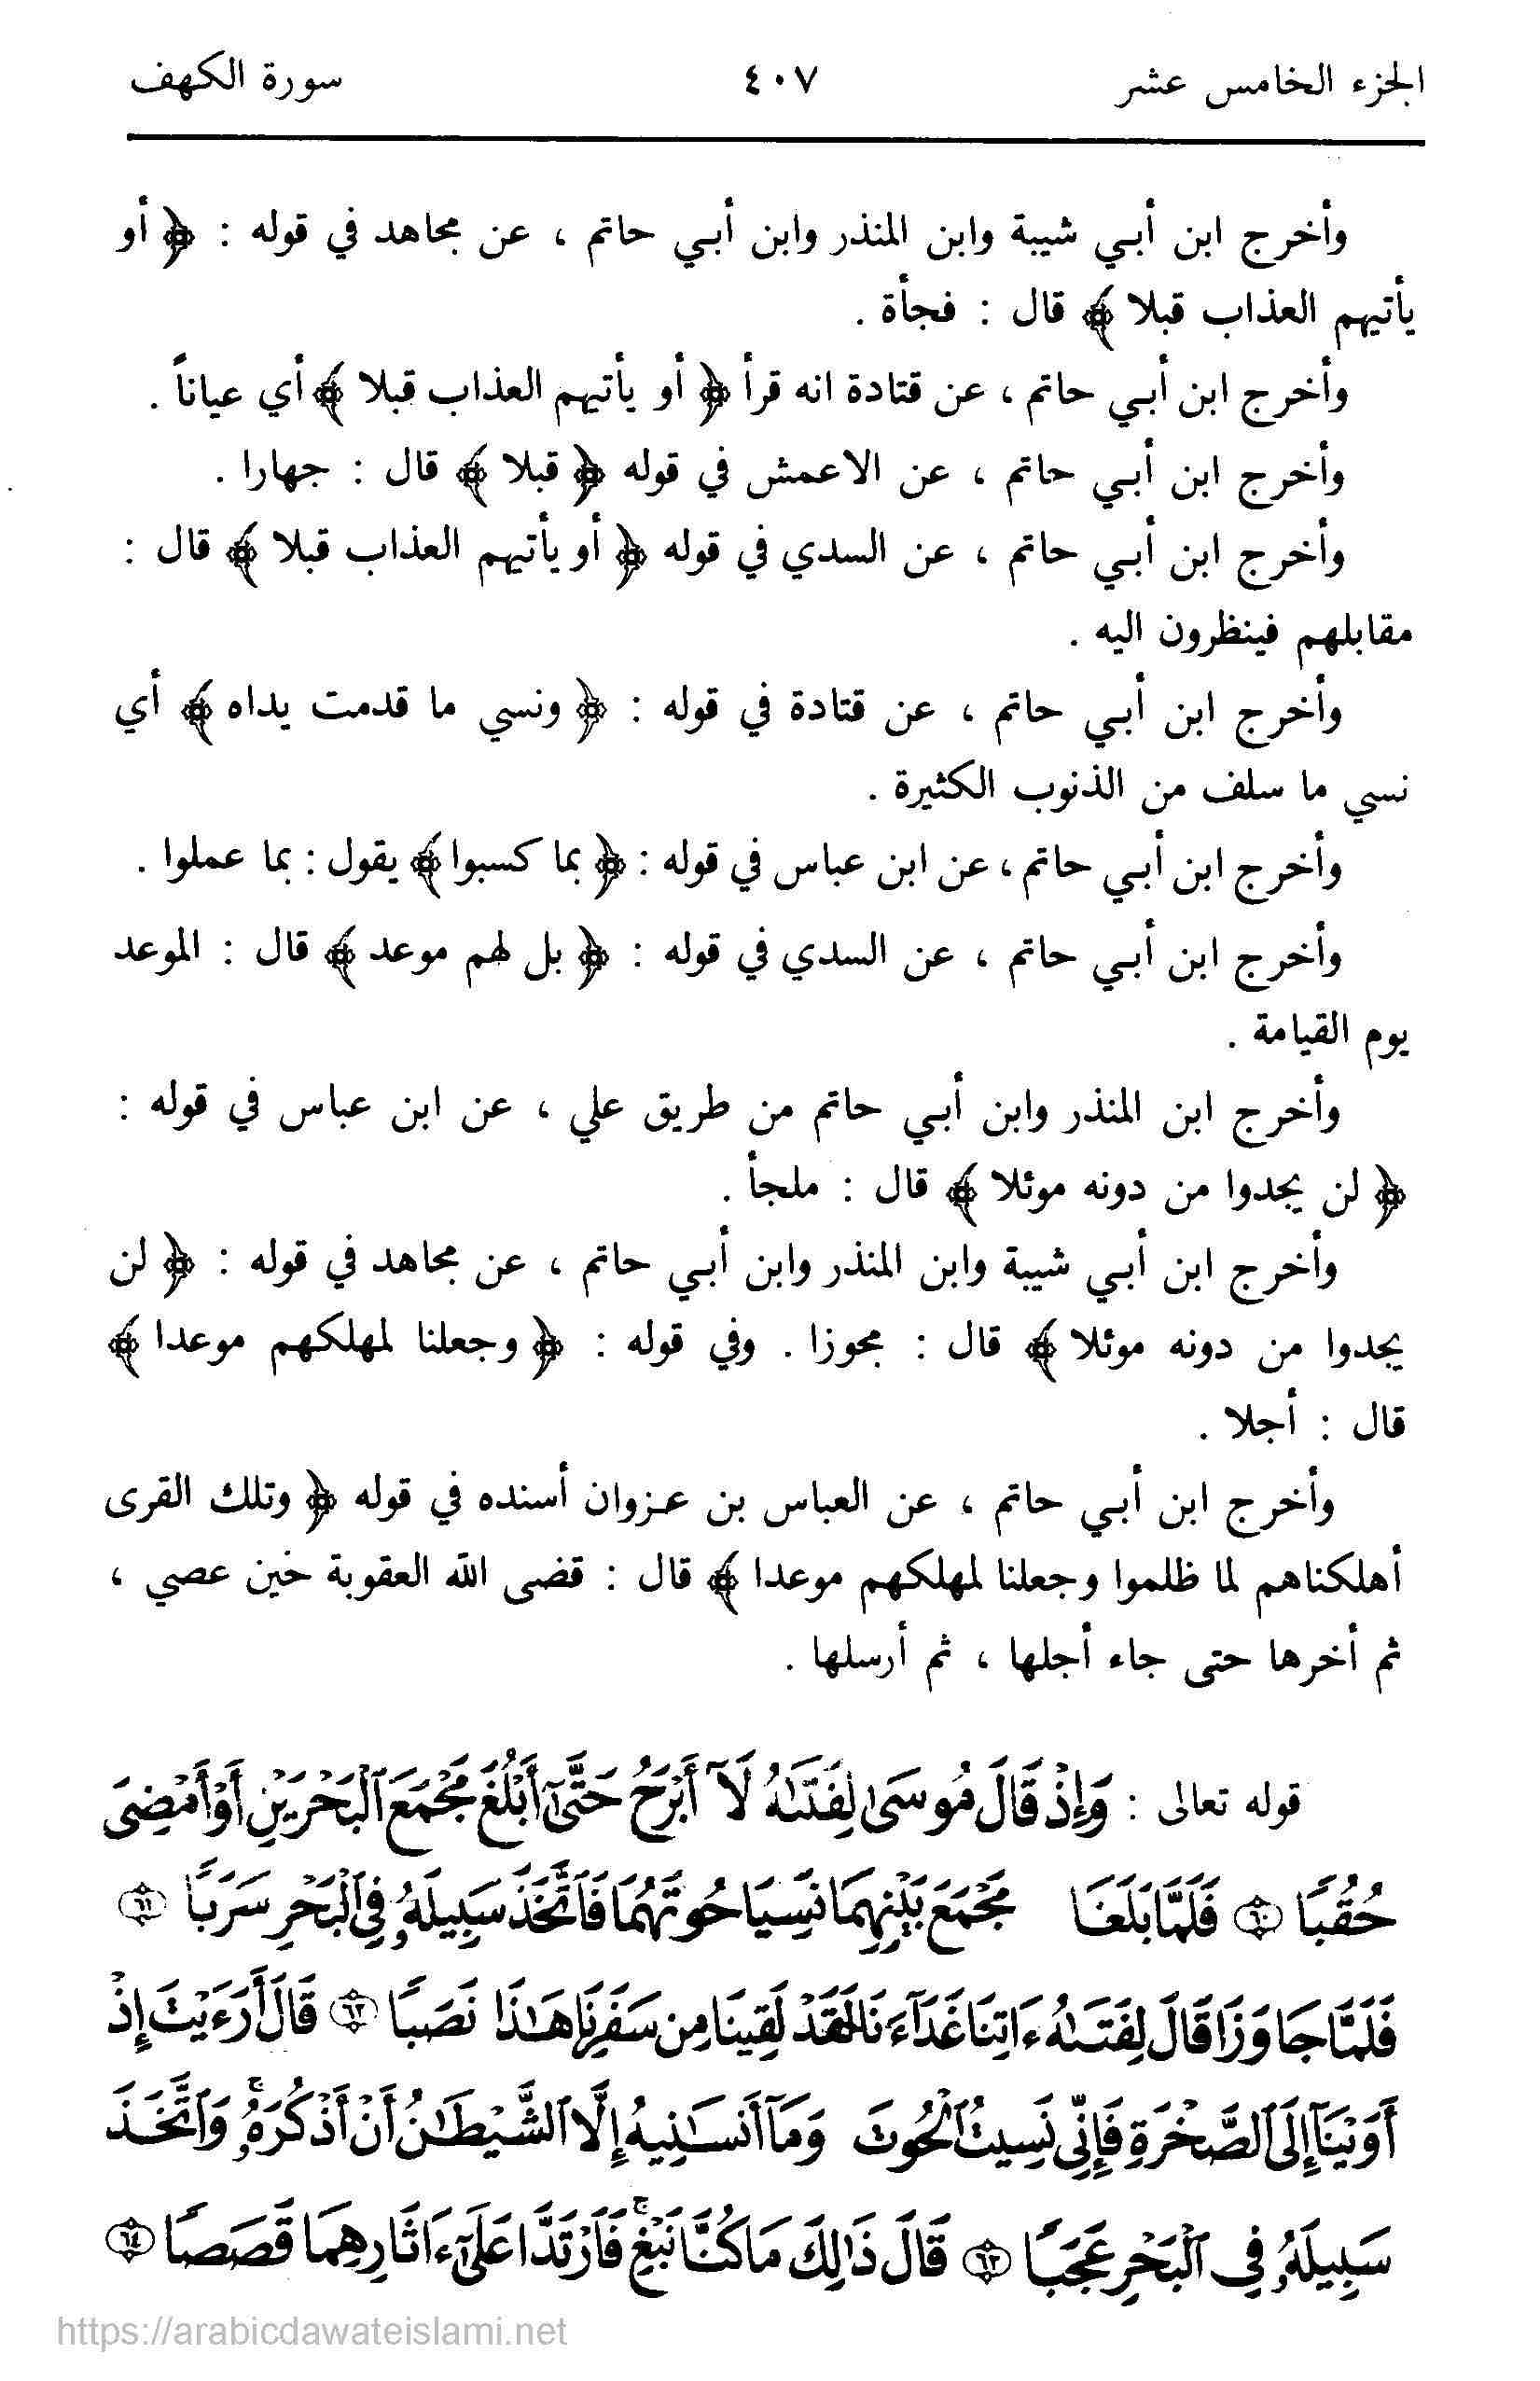 الجزء الخامس عشر ٤٠٧ سورة الكهف
وأخرج ابن أبي شيبة وابن المنذر وابن أبي حاتم ، عن مجاهد في قوله : ﴿ أو
يأتيهم العذاب قبلا ﴾ قال : فجأة .
وأخرج ابن أبي حاتم ، عن قتادة انه قرأ ﴿ أو يأتيهم العذاب قبلا ﴾ أي عياناً .
وأخرج ابن أبي حاتم ، عن الاعمش في قوله ﴿ قبلا ﴾ قال : جهارا .
وأخرج ابن أبي حاتم ، عن السدي في قوله ﴿ أو يأتيهم العذاب قبلا ﴾ قال :
مقابلهم فينظرون اليه .
وأخرج ابن أبي حاتم ، عن قتادة في قوله : ﴿ ونسي ما قدمت يداه ﴾ أي
نسي ما سلف من الذنوب الكثيرة .
وأخرج ابن أبي حاتم ، عن ابن عباس في قوله : ﴿ بما كسبوا ﴾ يقول : بما عملوا .
وأخرج ابن أبي حاتم ، عن السدي في قوله : ﴿ بل لهم موعد ﴾ قال : الموعد
يوم القيامة .
وأخرج ابن المنذر وابن أبي حاتم من طريق علي ، عن ابن عباس في قوله :
﴿ لن يجدوا من دونه موئلا ﴾ قال : ملجأ .
وأخرج ابن أبي شيبة وابن المنذر وابن أبي حاتم ، عن مجاهد في قوله : ﴿ لن
يجدوا من دونه موئلا ﴾ قال : مجوزا . وفي قوله : ﴿ وجعلنا لمهلكهم موعدا ﴾
قال : أجلا .
وأخرج ابن أبي حاتم ، عن العباس بن عزوان أسنده في قوله ﴿ وتلك القرى
أهلكناهم لما ظلموا وجعلنا لمهلكهم موعدا ﴾ قال : قضى الله العقوبة خين عصي ،
ثم أخرها حتى جاء أجلها ، ثم أرسلها .
قوله تعالى : وَإِذْ قَالَ مُوسَىٰ لِفَتَىٰهُ لَآ أَبْرَحُ حَتَّىٰٓ أَبْلُغَ مَجْمَعَ ٱلْبَحْرَيْنِ أَوْ أَمْضِىَ
حُقُبًا ﴿٦٠﴾ فَلَمَّا بَلَغَا مَجْمَعَ بَيْنِهِمَا نَسِيَا حُوتَهُمَا فَٱتَّخَذَ سَبِيلَهُۥ فِى ٱلْبَحْرِ سَرَبًا ﴿٦١﴾
فَلَمَّا جَاوَزَا قَالَ لِفَتَىٰهُ ءَاتِنَا غَدَآءَنَا لَقَدْ لَقِينَا مِن سَفَرِنَا هَٰذَا نَصَبًا ﴿٦٢﴾ قَالَ أَرَءَيْتَ إِذْ
أَوَيْنَآ إِلَى ٱلصَّخْرَةِ فَإِنِّى نَسِيتُ ٱلْحُوتَ وَمَآ أَنسَىٰنِيهُ إِلَّا ٱلشَّيْطَٰنُ أَنْ أَذْكُرَهُۥ ۚ وَٱتَّخَذَ
سَبِيلَهُۥ فِى ٱلْبَحْرِ عَجَبًا ﴿٦٣﴾ قَالَ ذَٰلِكَ مَا كُنَّا نَبْغِ ۚ فَٱرْتَدَّا عَلَىٰٓ ءَاثَارِهِمَا قَصَصًا ﴿٦٤﴾
https://arabicdawateislami.net